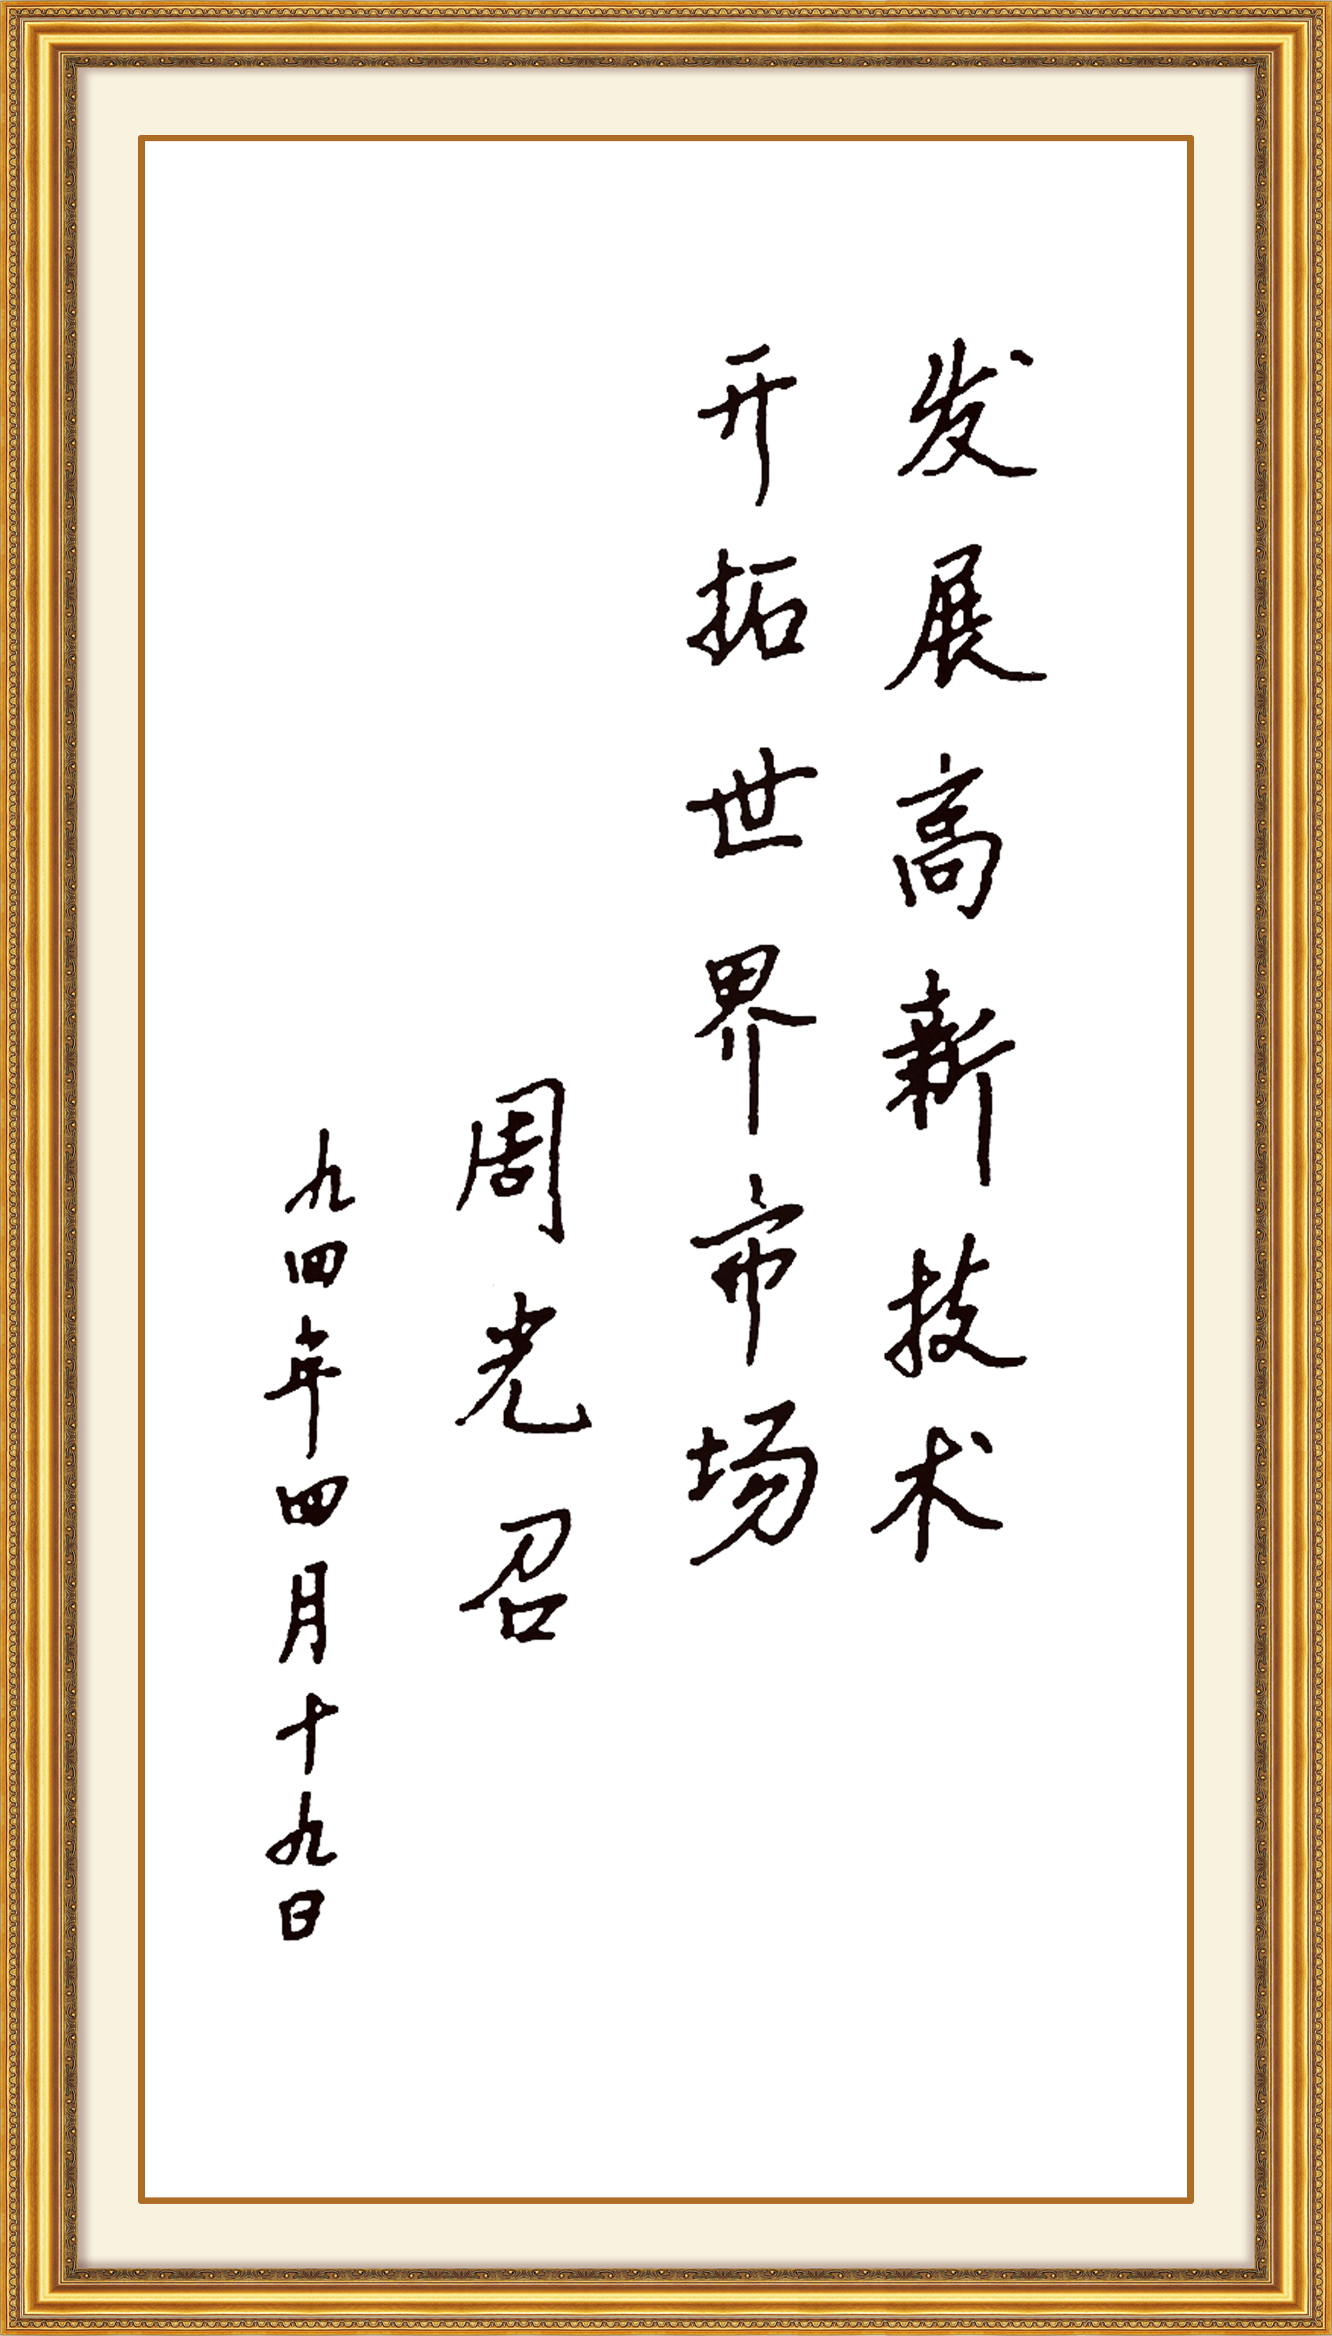 发展高新技术
开拓世界市场
周光召
九四年四月十九日